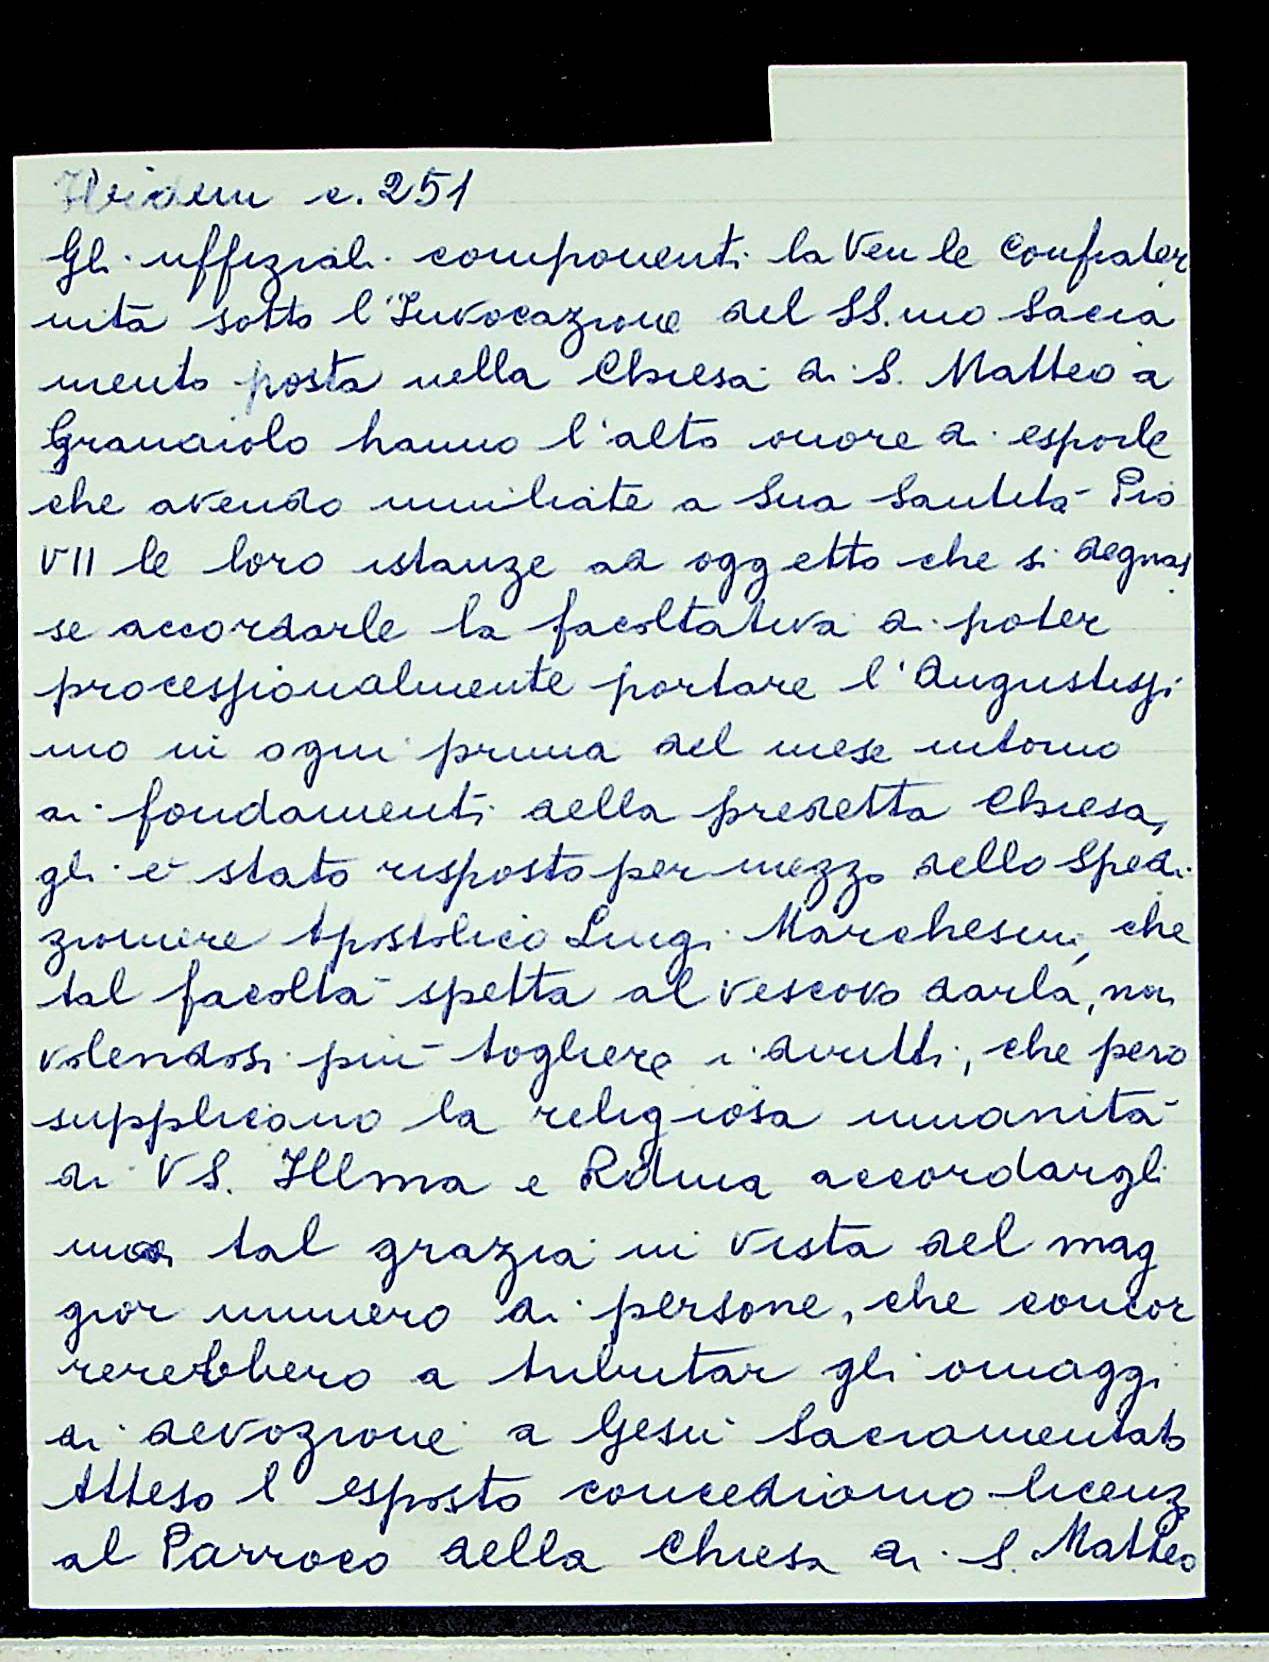 Ibidem c. 251
Gli uffiziali componenti la Ven le Confrater
nità sotto l'Invocazione del SS.mo Sacra
mento posta nella Chiesa di S. Matteo a
Granaiolo hanno l'alto onore di esporle
che avendo umiliate a Sua Santità Pio
VII le loro istanze ad oggetto che si degnas
se accordarle la facoltativa di poter
processionalmente portare l'Augustissi
mo in ogni prima del mese intorno
ai fondamenti della predetta Chiesa,
gli è stato risposto per mezzo dello Spedi
zioniere Apostolico Luigi Marchesini, che
tal facoltà spetta al vescovo darla, non
volendosi più togliere i diritti, che però
supplicano la religiosa umanità
di VS. Illma e Rdma accordargli
una tal grazia in vista del mag
gior numero di persone, che concor
rerebbero a tributar gli omaggi
di devozione a Gesù Sacramentato
Atteso l'esposto concediamo licenz
al Parroco della Chiesa di S. Matteo